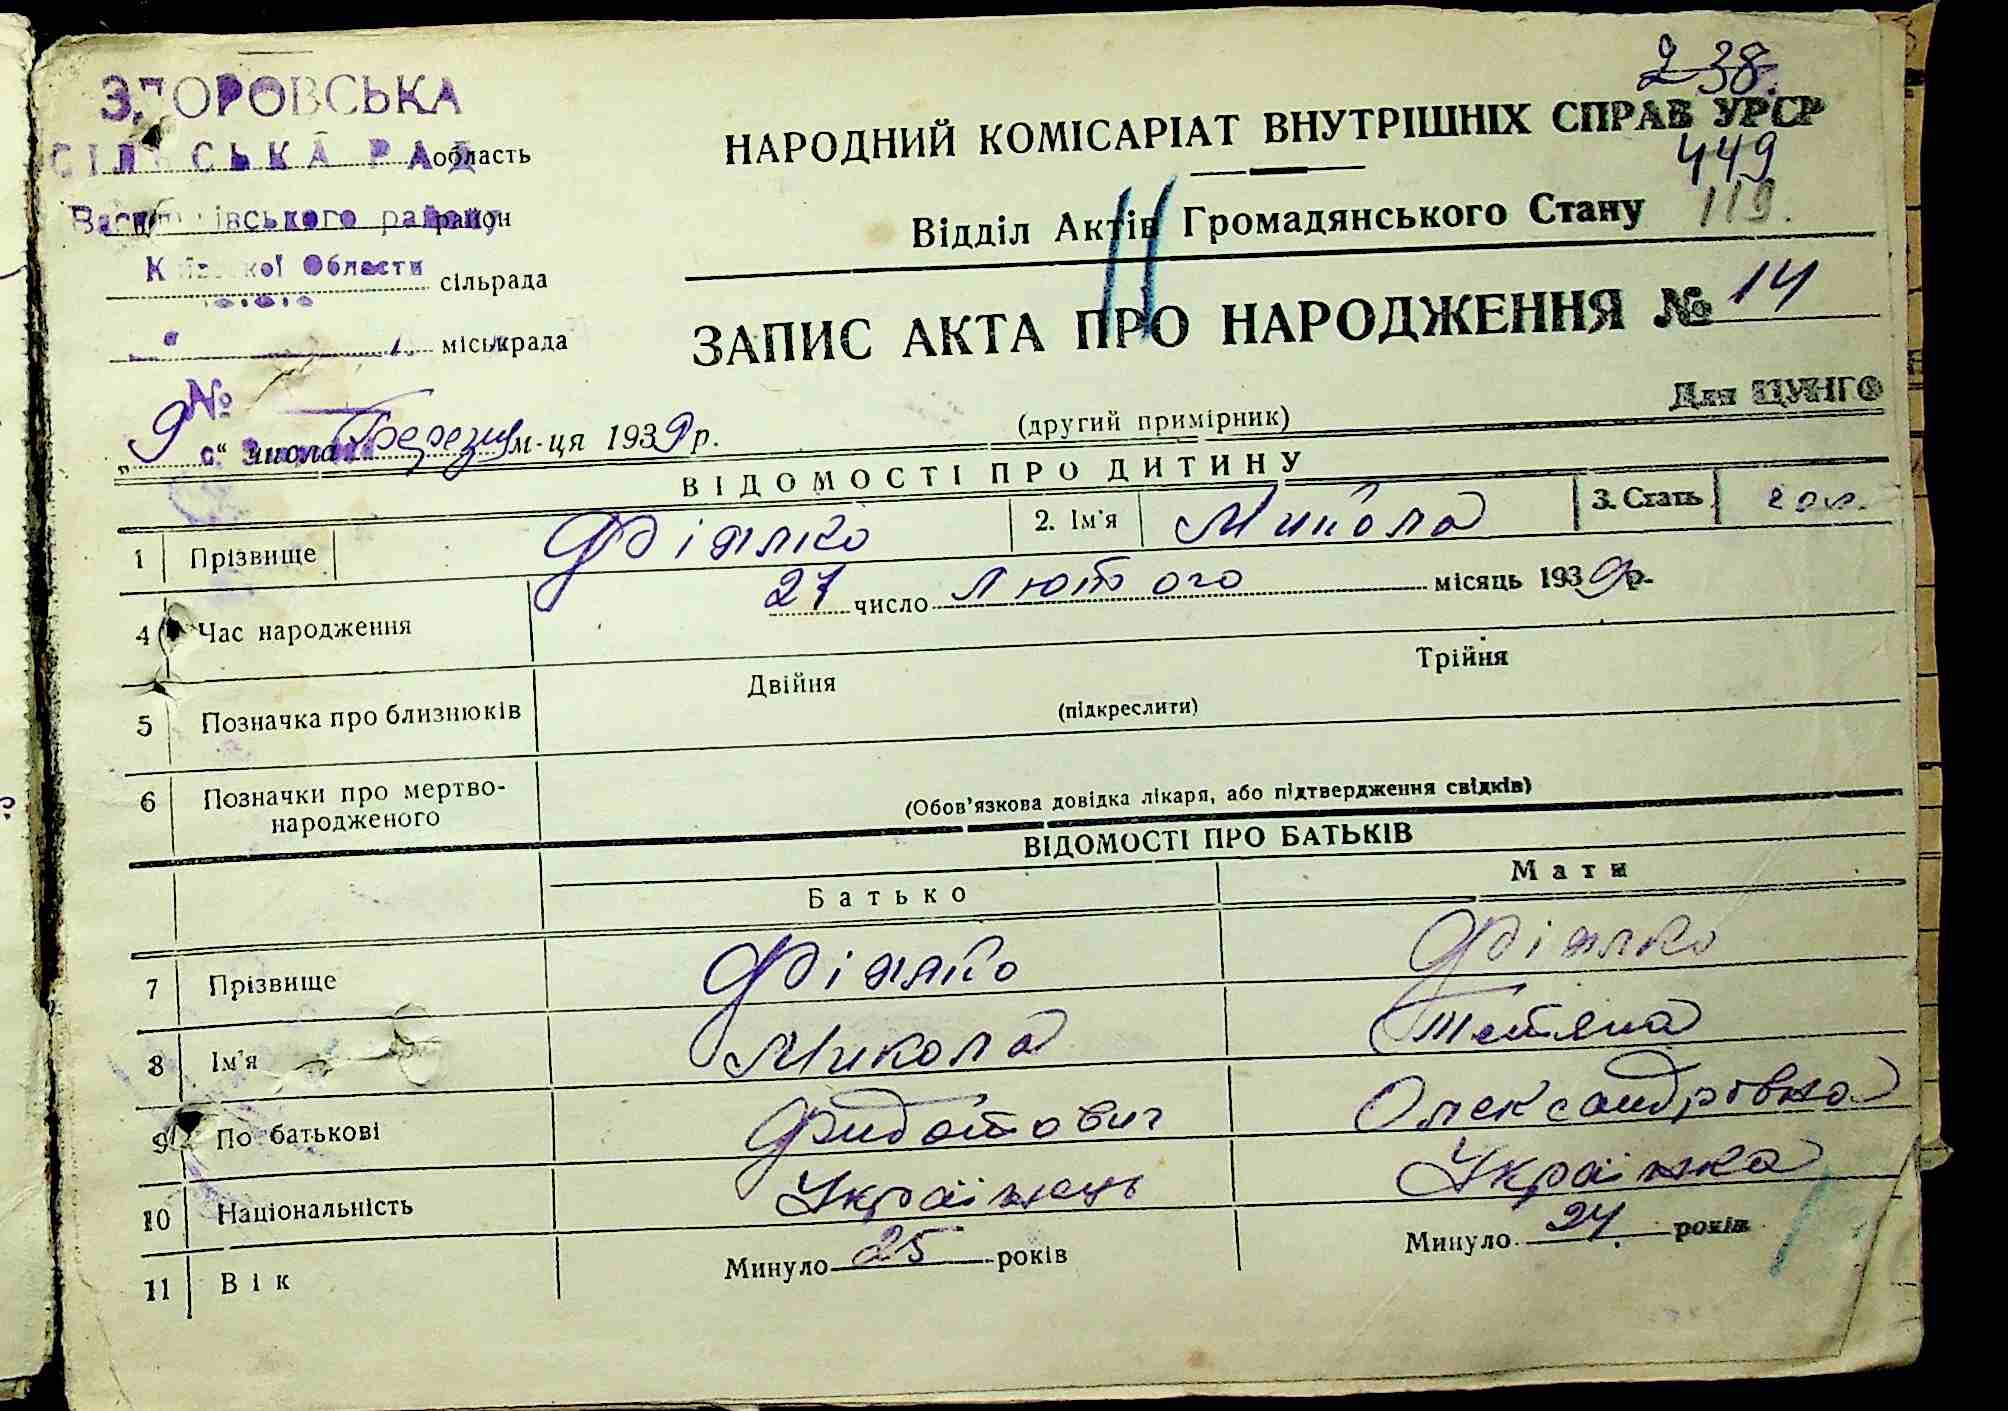 ЗДОРОВСЬКА
СІЛЬСЬКА РАДА область
Васильківського району район
Київської Области сільрада
міськрада
№
238.
НАРОДНИЙ КОМІСАРІАТ ВНУТРІШНІХ СПРАВ УРСР
449
Відділ Актів Громадянського Стану 119.
ЗАПИС АКТА ПРО НАРОДЖЕННЯ № 14
„9“ числа Березня м-ця 1939 р.
(другий примірник)
Для ЦУНГО
ВІДОМОСТІ ПРО ДИТИНУ
1 Прізвище Фіялко 2. Ім'я Микола 3. Стать чол.
4 Час народження 27 число Лютого місяць 1939 р.
5 Позначка про близнюків Двійня Трійня
(підкреслити)
6 Позначки про мертво-
народженого
(Обов'язкова довідка лікаря, або підтвердження свідків)
ВІДОМОСТІ ПРО БАТЬКІВ
Батько Мати
7 Прізвище Фіялко Фіялко
8 Ім'я Микола Тетяна
9 По батькові Федотович Олександровна
10 Національність Українець Українка
11 Вік Минуло 25 років Минуло 24 років